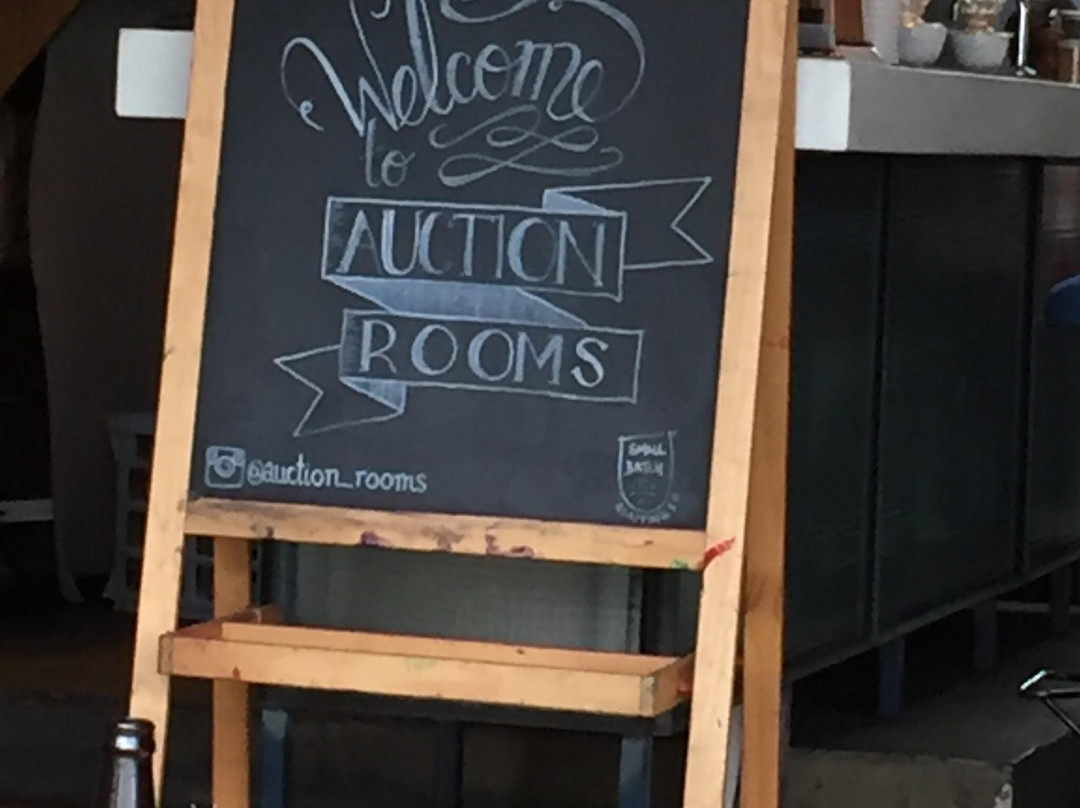 Welcome
to
AUCTION
ROOMS
@auction_rooms
SMALL
BATCH